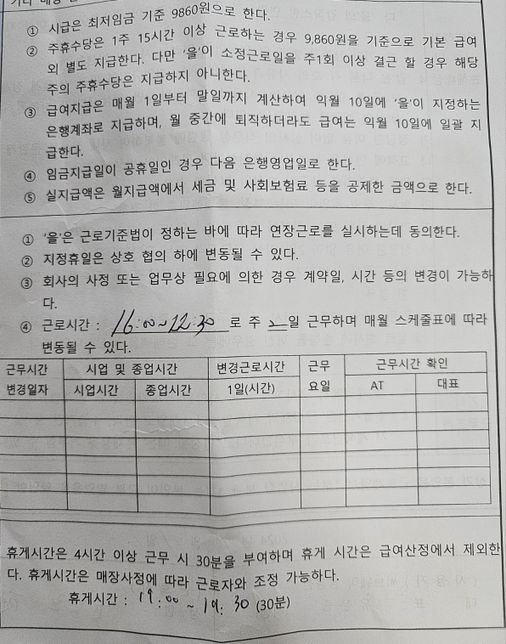 ① 시급은 최저임금 기준 9860원으로 한다.
② 주휴수당은 1주 15시간 이상 근로하는 경우 9,860원을 기준으로 기본 급여
외 별도 지급한다. 다만 '을'이 소정근로일을 주1회 이상 결근 할 경우 해당
주의 주휴수당은 지급하지 아니한다.
③ 급여지급은 매월 1일부터 말일까지 계산하여 익월 10일에 '을'이 지정하는
은행계좌로 지급하며, 월 중간에 퇴직하더라도 급여는 익월 10일에 일괄 지
급한다.
④ 임금지급일이 공휴일인 경우 다음 은행영업일로 한다.
⑤ 실지급액은 월지급액에서 세금 및 사회보험료 등을 공제한 금액으로 한다.
① '을'은 근로기준법이 정하는 바에 따라 연장근로를 실시하는데 동의한다.
② 지정휴일은 상호 협의 하에 변동될 수 있다.
③ 회사의 사정 또는 업무상 필요에 의한 경우 계약일, 시간 등의 변경이 가능하
다.
④ 근로시간 : 16:00~12:30 로 주 2일 근무하며 매월 스케줄표에 따라
변동될 수 있다.
근무시간 시업 및 종업시간 변경근로시간 근무 근무시간 확인
변경일자 시업시간 종업시간 1일(시간) 요일 AT 대표
휴게시간은 4시간 이상 근무 시 30분을 부여하며 휴게 시간은 급여산정에서 제외한
다. 휴게시간은 매장사정에 따라 근로자와 조정 가능하다.
휴게시간 : 19:00 ~ 19:30 (30분)